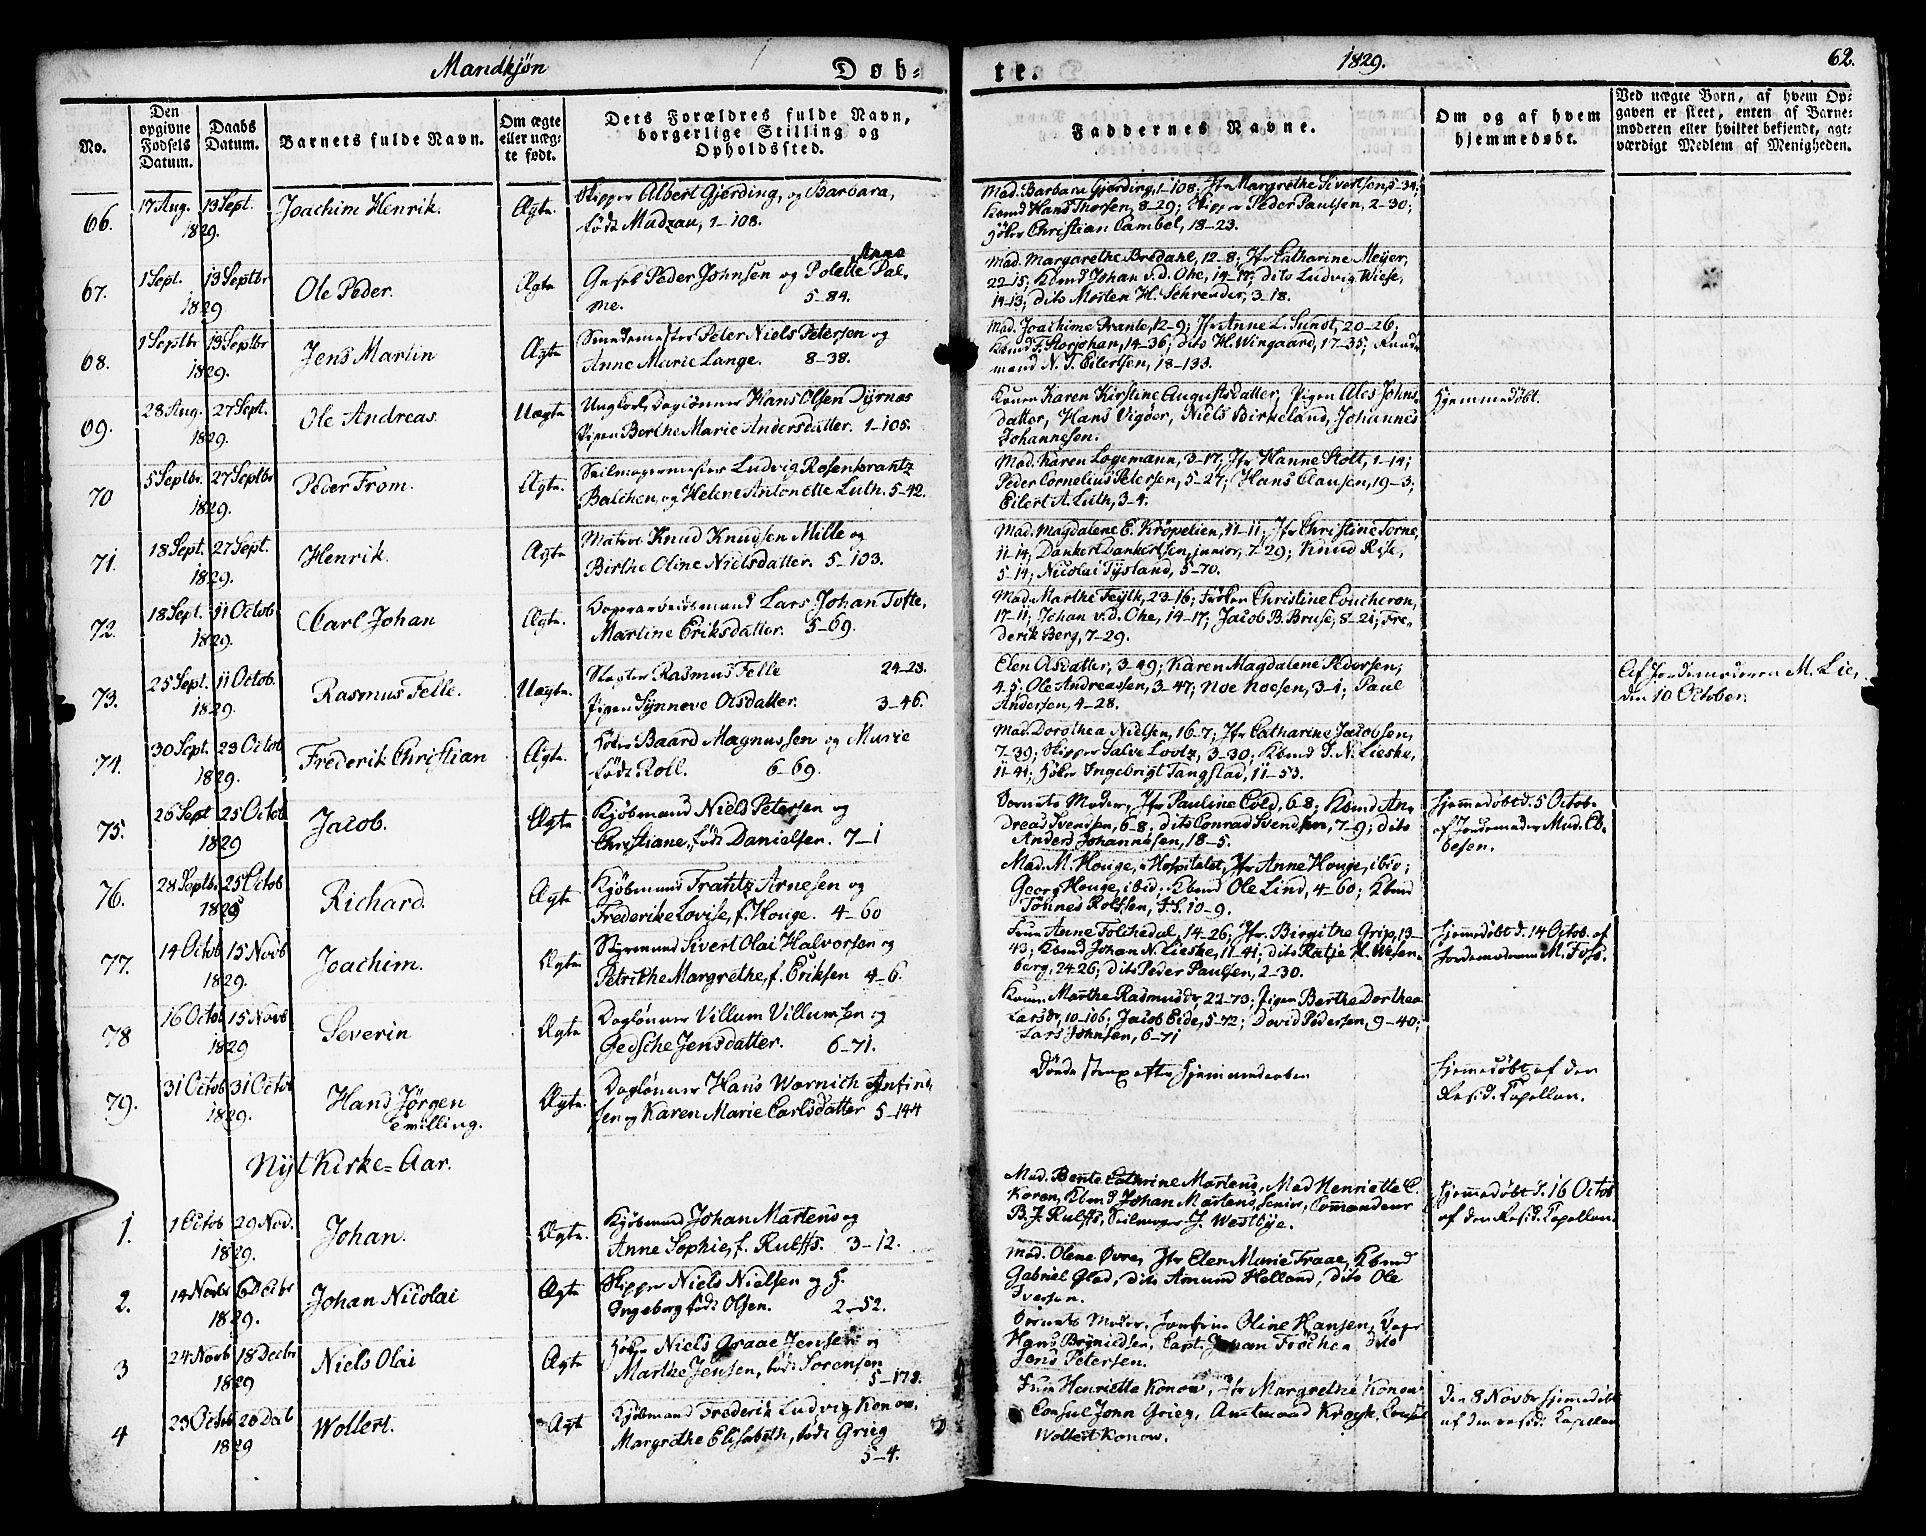 Mandkjøn
Døb-
te.
1829.
62.
No.
Den opgivne Fødsels Datum.
Daabs Datum.
Barnets fulde Navn.
Om ægte eller uægte født.
Dets Forældres fulde Navn, borgerlige Stilling og Opholdssted.
Faddernes Navne.
Om og af hvem hjemmedøbt.
Ved uægte Børn, af hvem Opgaven er skeet, enten af Barnemoderen eller hvilket bekjendt, agtværdigt Medlem af Menigheden.
66. 17 Aug. 13 Sept. 1829. Joachim Henrik. Ægte.
Skipper Albert Gjerding, og Barbara,
født Madzau, 1-108.
Mad. Barbara Gjerding, 1-108; Jfr Margrethe Sivertsen, 5-34;
Kbmd Hans Thorsen, 8-29; Skipper Peder Paulsen, 2-30;
Høker Christian Cambel, 18-23.
67. 1 Sept. 13 Septbr 1829 Ole Peder. Ægte
Peder Johnsen og Anne Polette Pal-
me. 5-84.
Mad. Margarethe Bredahl, 12-8; Jfr Catharine Meyer,
22-15; Kbmd Johan v.d. Ohe, 14-17; dito Ludvig Wiese,
14-13; dito Morten H. Schreuder, 3-18.
68. 1 Septbr 13 Septbr 1829. Jens Martin Ægte
Peter Niels Petersen og
Anne Marie Lange. 8-38.
Mad. Joachime Prante, 12-9; Jfr Anne L. Sundt, 20-26;
Kbmd F. Storjohan, 14-36; dito H. Wingaard, 17-35;
mand N. T. Eilertsen, 18-133.
69. 28 Aug. 27 Sept. 1829. Ole Andreas. Uægte
Ungkarl, Daglønner Hans Olsen Dyrnæs
Pigen Berthe Marie Andersdatter. 1-105.
Konen Karen Kirstine Augustsdatter, Pigen Ales Johns-
datter, Hans Vigøer, Niels Birkeland, Johannes
Johannesen.
Hjemmedøbt.
70 5 Septbr. 27 Septbr 1829. Peder From. Ægte.
Seilmagermester Ludvig Rosenkrantz
Balchen og Helene Antonette Luth. 5-42.
Mad. Karen Logemann, 3-17; Jfr Hanne Stolt, 1-14;
Peder Cornelius Petersen, 5-27; Hans Clausen, 19-3;
Eilert A. Luth, 3-4.
71. 18 Sept. 27 Sept. 1829. Henrik. Ægte
Matros Knud Knudsen Mille og
Birthe Oline Nielsdatter. 5-103.
Mad. Magdalene E. Krøpelien, 11-11; Jfr Christine Torne,
11-14; Dankert Dankertsen, junior, 7-29; Knud Rise,
5-14; Nicolai Tysland, 5-70.
72. 18 Sept. 11 Octob 1829. Carl Johan Ægte.
Lars Johan Tofte,
Martine Eriksdatter. 5-69.
Mad. Marthe Feylk, 23-16; Frøken Christine Coucheron,
17-11; Johan v.d. Ohe, 14-17; Jacob B. Bruse, 8-21; Fre-
derik Berg, 7-29.
73. 25 Sept. 11 Octob. 1829. Rasmus Felle. Uægte.
Slagter Rasmus Felle 24-23.
Pigen Synneve Olsdatter. 3-46.
Elen Aisdatter, 3-49; Karen Magdalene Pedersen,
4-5; Ole Andreassen, 3-47; Noe Noesen, 3-1; Paul
Andersen, 4-28.
Af Jordemoderen M. Lie,
den 10 October.
74. 30 Sept. 23 Octob 1829. Frederik Christian Ægte.
Høker Baard Magnussen og Marie
født Roll. 6-69.
Mad. Dorothea Nielsen, 16-7; Jfr Catharine Jacobsen,
7-39; Skipper Salve Lootz, 3-30; Kbmd J. N. Lieske,
11-41; Høker Ingebrigt Tangstad, 11-53.
75. 26 Sept 25 Octob 1829 Jacob. Ægte
Kjøbmand Niels Petersen og
Christiane, født Danielsen. 7-1
Barnets Moder, Jfr Pauline Cold, 6-8; Kbmd An-
dreas Svendsen, 6-8; dito Conrad Svendsen, 7-9; dito
Anders Johannesen, 18-5.
Hjemmedøbt d. 5 Octob.
af Jordemoder Mad. Eb-
besen.
76. 28 Septb. 25 Octob 1829 Richard Ægte
Kjøbmand Frantz Arnesen og
Frederike Lovise, f. Houge. 4-60
Mad. M. Houge, i Hospitalet, Jfr Anne Houge, ibid;
Georg Houge, ibid; Kbmd Ole Lind, 4-60; Kbmd
Tønnes Rolfsen, 10-9.
77. 14 Octob 15 Novb 1829. Joachim. Ægte.
Styrmand Sivert Olai Halvorsen og
Petrikke Margrethe, f. Eriksen 4-6.
Fru Anne Foschedal, 14-26; Jfr. Birgithe Grip, 13-
43; Kbmd Johan N. Lieske, 11-41; dito Katje H. Wesen-
berg, 24-26; dito Peder Paulsen, 2-30.
Hjemmedøbt d. 14 Octob. af
Jordemoderen M. Foss.
78 16 Octob 15 Novb 1829 Severin Ægte
Daglønner Villum Villumsen og
Gedsche Jensdatter. 6-71.
Konen Marthe Rasmusdr, 22-73; Pigen Berthe Dorthea
Larsdr, 10-106; Jacob Eide, 5-72; David Pedersen, 9-40;
Lars Johnsen, 6-71
79. 31 Octob 31 Octob 1829. Hans Jørgen
tvilling. Ægte.
Daglønner Hans Wernich Anfind-
sen og Karen Marie Carlsdatter 5-144
Døde strax efter Hjemmedaaben
Hjemmedøbt af den
Resid. Capellan.
Nyt Kirke-Aar.
1. 1 Octob 29 Nov. 1829. Johan. Ægte.
Kjøbmand Johan Martens og
Anne Sophie, f. Rulffs. 3-12.
Mad. Bente Cathrine Martens, Mad Henriette C.
Koren, Kbmd Johan Martens, Senior, Commandeur
B. J. Rulffs, Seilmager J. Westbye.
Hjemmedøbt d. 16 Octob
af den Resid. Capellan.
2. 14 Novbr 6 Decbr 1829. Johan Nicolai Ægte
Skipper Niels Nielsen og H.
Ingeborg født Olsen. 2-52.
Mad. Olene Øvre, Jfr Elen Marie Traae, Kbmd
Gabriel Glad, dito Amund Helland, dito Ole
Iversen.
3 24 Novb 18 Decbr 1829 Niels Olai Ægte
Høker Niels Graae Jensen og
Marthe Jensen, født Sørensen
5-178.
Barnets Moder, Jomfrue Oline Hansen,
Hans Brynildsen, Capt. Johan Frøchen dito
Jens Petersen.
4 23 Octob 20 Decb 1829 Wollert. Ægte
Kjøbmand Frederik Ludvig Konow,
Margrethe Elisabeth, født Grieg
5-4.
Frue Henriette Konow, Jfr Margrethe Konow
Consul John Grieg, Amtmand Krogh, Consul
Wollert Konow.
Den 8 Novbr hjemmedøbt
af den resid: Capellan